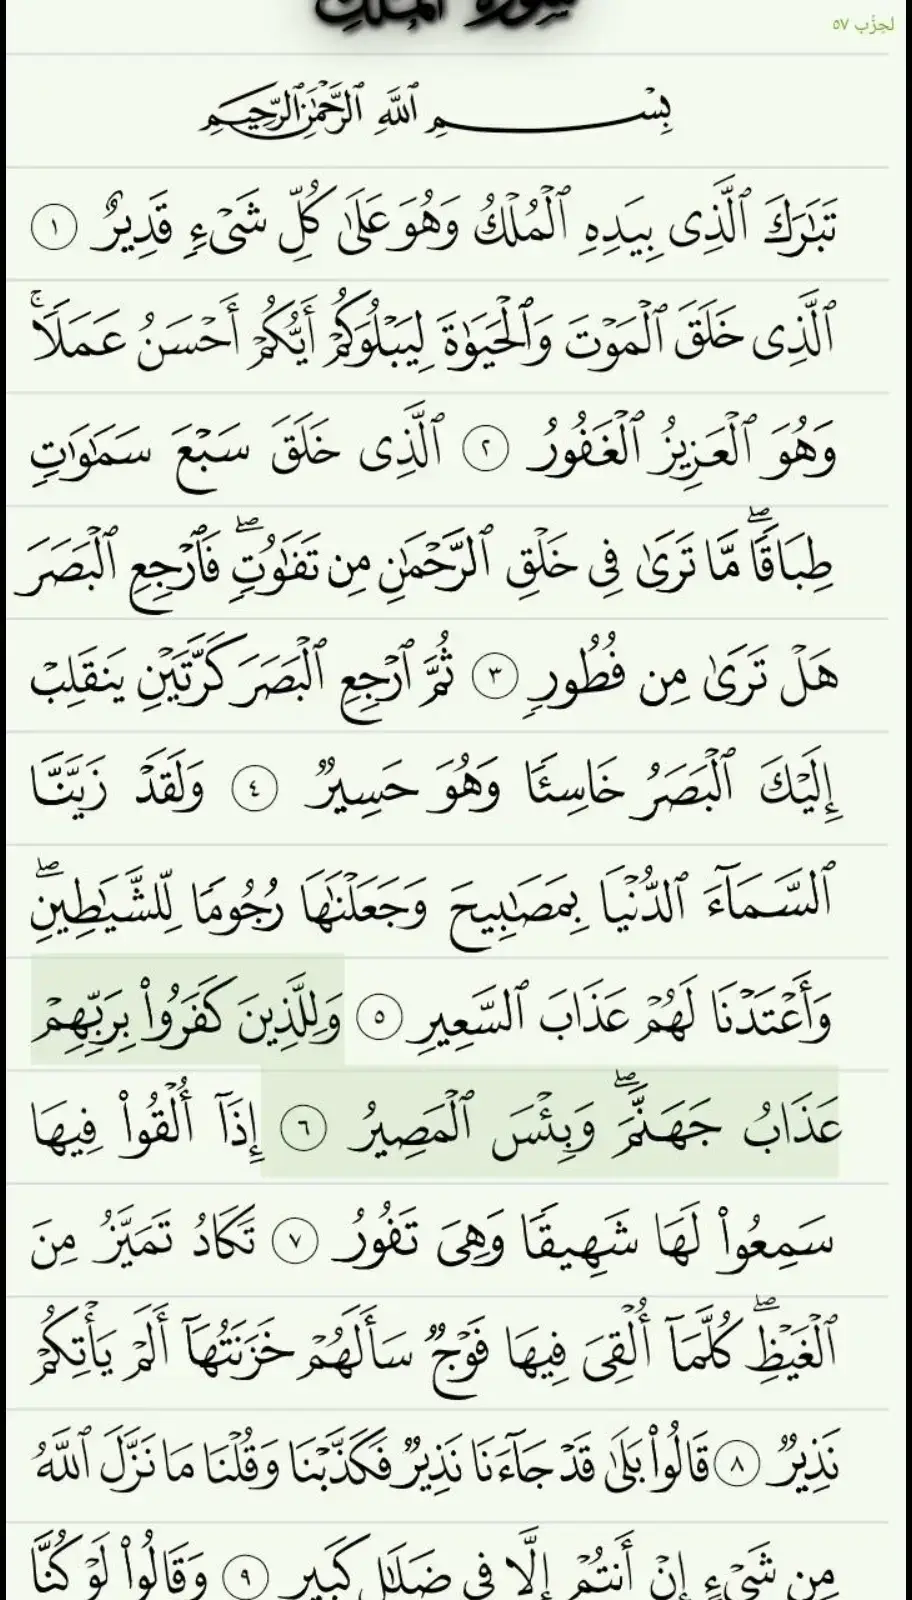 سورة الملك
لحِزْب ٥٧
بِسْمِ ٱللَّهِ ٱلرَّحْمَٰنِ ٱلرَّحِيمِ
تَبَٰرَكَ ٱلَّذِى بِيَدِهِ ٱلْمُلْكُ وَهُوَ عَلَىٰ كُلِّ شَىْءٍ قَدِيرٌ ١
ٱلَّذِى خَلَقَ ٱلْمَوْتَ وَٱلْحَيَوٰةَ لِيَبْلُوَكُمْ أَيُّكُمْ أَحْسَنُ عَمَلًا ۚ
وَهُوَ ٱلْعَزِيزُ ٱلْغَفُورُ ٢ ٱلَّذِى خَلَقَ سَبْعَ سَمَٰوَٰتٍ
طِبَاقًا ۖ مَّا تَرَىٰ فِى خَلْقِ ٱلرَّحْمَٰنِ مِن تَفَٰوُتٍ ۖ فَٱرْجِعِ ٱلْبَصَرَ
هَلْ تَرَىٰ مِن فُطُورٍ ٣ ثُمَّ ٱرْجِعِ ٱلْبَصَرَ كَرَّتَيْنِ يَنقَلِبْ
إِلَيْكَ ٱلْبَصَرُ خَاسِئًا وَهُوَ حَسِيرٌ ٤ وَلَقَدْ زَيَّنَّا
ٱلسَّمَآءَ ٱلدُّنْيَا بِمَصَٰبِيحَ وَجَعَلْنَٰهَا رُجُومًا لِّلشَّيَٰطِينِ ۖ
وَأَعْتَدْنَا لَهُمْ عَذَابَ ٱلسَّعِيرِ ٥ وَلِلَّذِينَ كَفَرُوا۟ بِرَبِّهِمْ
عَذَابُ جَهَنَّمَ ۖ وَبِئْسَ ٱلْمَصِيرُ ٦ إِذَآ أُلْقُوا۟ فِيهَا
سَمِعُوا۟ لَهَا شَهِيقًا وَهِىَ تَفُورُ ٧ تَكَادُ تَمَيَّزُ مِنَ
ٱلْغَيْظِ ۖ كُلَّمَآ أُلْقِىَ فِيهَا فَوْجٌ سَأَلَهُمْ خَزَنَتُهَآ أَلَمْ يَأْتِكُمْ
نَذِيرٌ ٨ قَالُوا۟ بَلَىٰ قَدْ جَآءَنَا نَذِيرٌ فَكَذَّبْنَا وَقُلْنَا مَا نَزَّلَ ٱللَّهُ
مِن شَىْءٍ إِنْ أَنتُمْ إِلَّا فِى ضَلَٰلٍ كَبِيرٍ ٩ وَقَالُوا۟ لَوْ كُنَّا